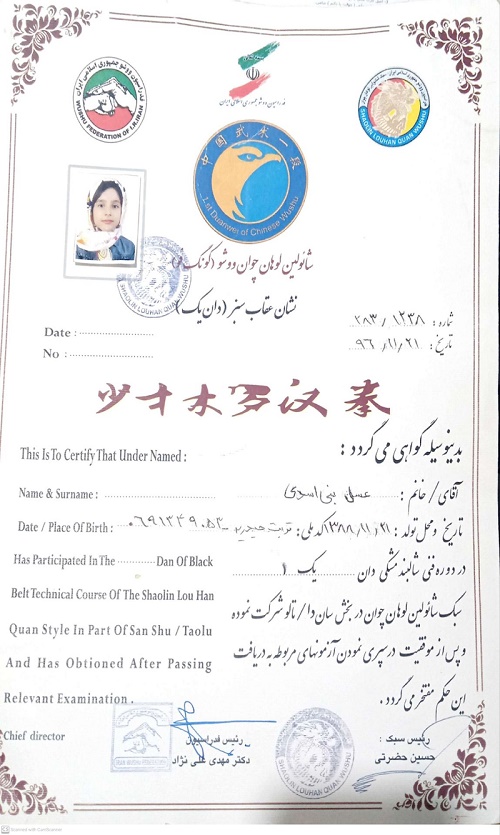 فدراسیون ووشو جمهوری اسلامی ایران
WUSHU FEDERATION OF I.R.IRAN
فدراسیون ووشو جمهوری اسلامی ایران
SHAOLIN LOUHAN QUAN WUSHU
中国武术一段
1.st Duanwei of Chinese Wushu
شائولین لوهان چوان ووشو (کونگ فو)
SHAOLIN LOUHAN QUAN WUSHU
نشان عقاب سبز (دان یک)
شماره : ۲۸۳/۱۲۳۸
Date :
تاریخ : ۹۶/۱۱/۲۱
No :
少林罗汉拳
This Is To Certify That Under Named :
بدینوسیله گواهی می گردد :
Name & Surname :
آقای / خانم : عسل بنی اسدی
Date / Place Of Birth :
تاریخ و محل تولد : ۱۳۸۸/۱۱/۲۱ کدملی : تربت حیدریه
Has Participated In The Dan Of Black
در دوره فنی شالبند مشکی دان یک ۱
Belt Technical Course Of The Shaolin Lou Han
سبک شائولین لوهان چوان در بخش ساندا / تالو شرکت نموده
Quan Style In Part Of San Shu / Taolu
و پس از موفقیت در سپری نمودن آزمونهای مربوطه به دریافت
And Has Obtioned After Passing
این حکم مفتخر می گردد .
Relevant Examination .
Chief director
رئیس فدراسیون
دکتر مهدی علی نژاد
رئیس سبک :
حسین حضرتی
SHAOLIN LOUHAN QUAN WUSHU
Scanned with CamScanner